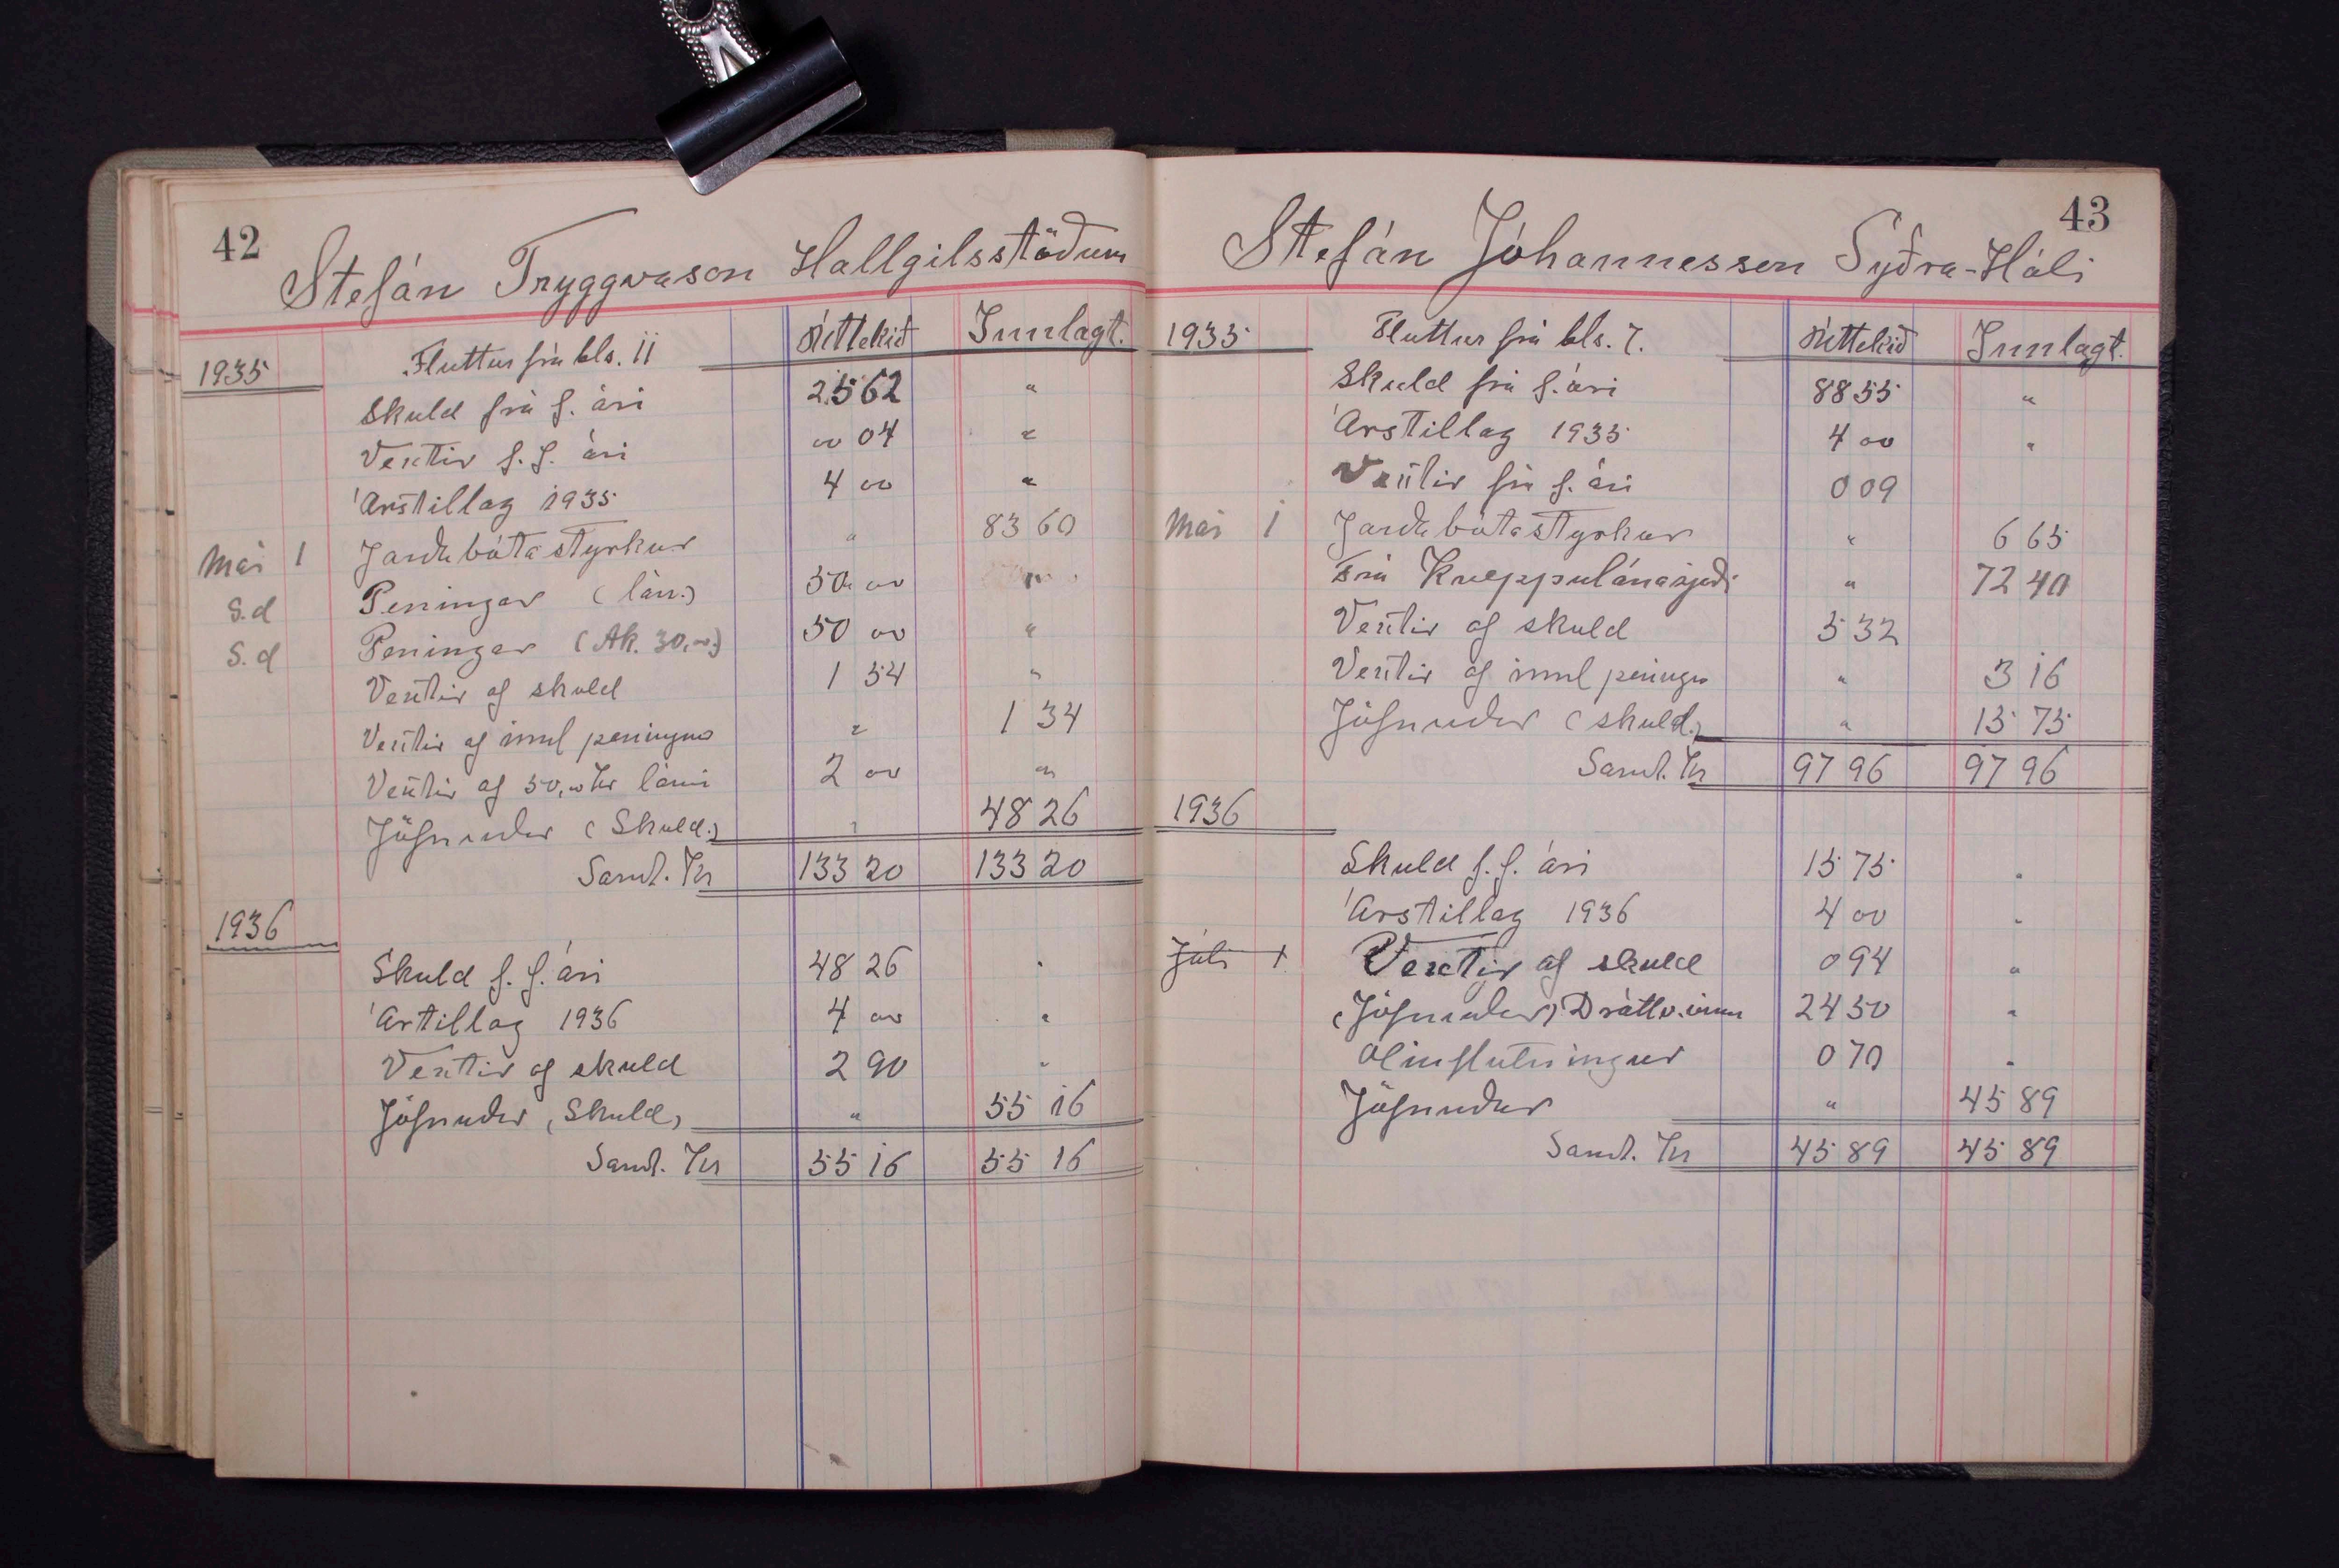 42
Stefán Tryggvason Hallgilsstöðum
1935 Fluttur frá bls. 11 Úttekið Innlagt.
Skuld frá f. ári 25 62 "
Vextir f. f. ári 00 04 "
Árstillag 1935 4 00 "
Maí 1 Jarðabótastyrkur " 83 60
S.d Peningar (lán.) 50 00 "
S.d Peningar (Ak. 30,00) 50 00 "
Vextir af skuld 1 54 "
Vextir af innl peningum " 1 34
Vextir af 50,00 kr láni 2 00 "
Jöfnuður (Skuld.) " 48 26
Saml. Kr 133 20 133 20
1936
Skuld f. f. ári 48 26 "
Ártillag 1936 4 00 "
Vextir af skuld 2 90 "
Jöfnuður (Skuld) " 55 16
Saml. Kr 55 16 55 16
43
Stefán Jóhannesson Syðra-Hóli
1935 Fluttur frá bls. 7. Úttekið Innlagt.
Skuld frá f. ári 88 55 "
Árstillag 1935 4 00 "
Vextir frá f. ári 0 09
Maí 1 Jarðabótastyrkur " 6 65
Frá Kreppulánasjóði " 72 40
Vextir af skuld 5 32
Vextir af innl peningum " 3 16
Jöfnuður (skuld.) " 15 75
Saml. Kr 97 96 97 96
1936
Skuld f. f. ári 15 75 "
Árstillag 1936 4 00 "
Júlí 1 Vextir af skuld 0 94 "
(Jöfnuður) Dráttv. 24 50 "
Olíuflutningur 0 70 "
Jöfnuður " 45 89
Saml. Kr 45 89 45 89